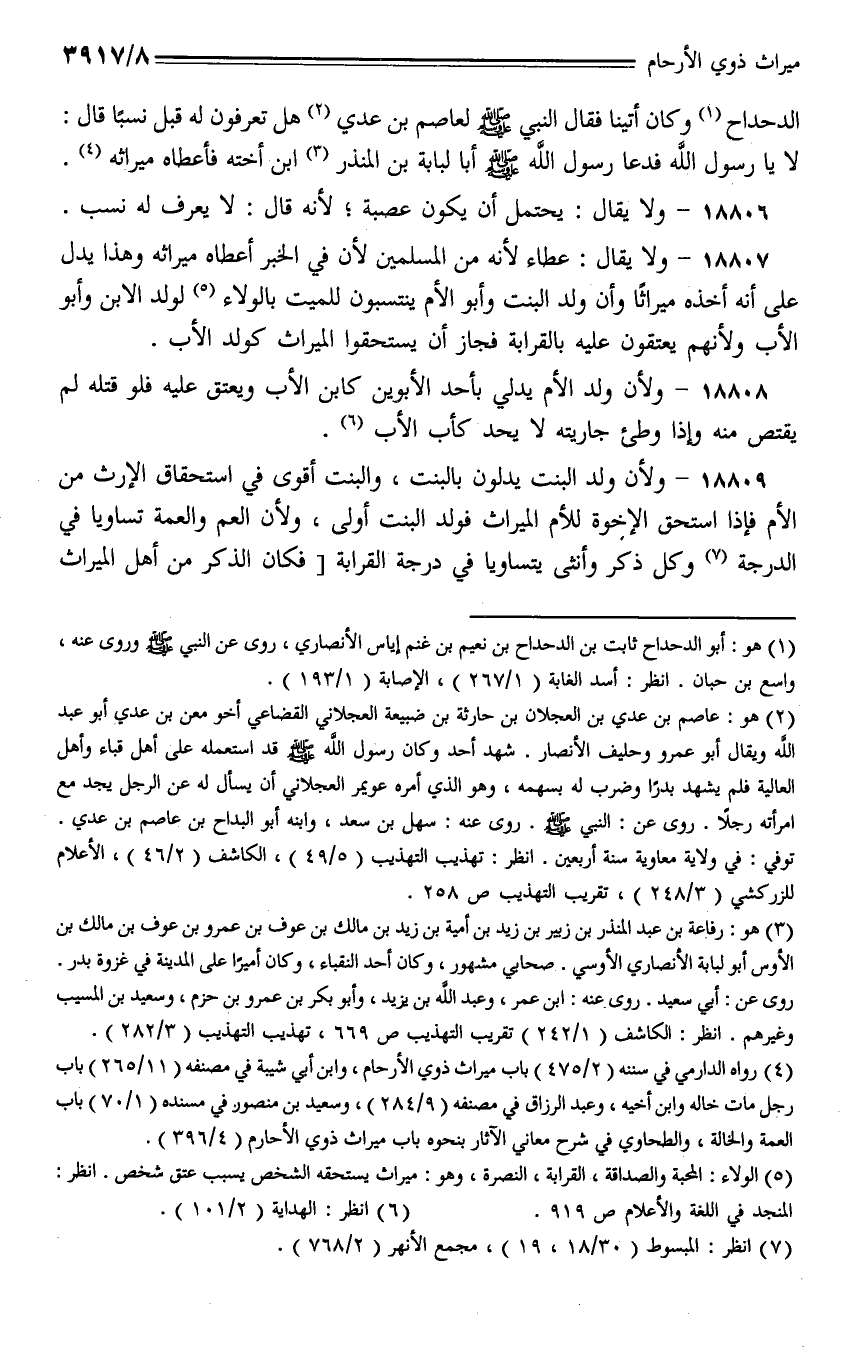 ميراث ذوي الأرحام ٣٩١٧/٨
الدحداح (١) وكان أتينا فقال النبي ﷺ لعاصم بن عدي (٢) هل تعرفون له قبل نسبًا قال :
لا يا رسول اللَّه فدعا رسول اللَّه ﷺ أبا لبابة بن المنذر (٣) ابن أخته فأعطاه ميراثه (٤) .
١٨٨٠٦ - ولا يقال : يحتمل أن يكون عصبة ؛ لأنه قال : لا يعرف له نسب .
١٨٨٠٧ - ولا يقال : عطاء لأنه من المسلمين لأن في الخبر أعطاه ميراثه وهذا يدل
على أنه أخذه ميراثًا وأن ولد البنت وأبو الأم ينتسبون للميت بالولاء (٥) لولد الابن وأبو
الأب ولأنهم يعتقون عليه بالقرابة فجاز أن يستحقوا الميراث كولد الأب .
١٨٨٠٨ - ولأن ولد الأم يدلي بأحد الأبوين كابن الأب ويعتق عليه فلو قتله لم
يقتص منه وإذا وطئ جاريته لا يحد كأب الأب (٦) .
١٨٨٠٩ - ولأن ولد البنت يدلون بالبنت ، والبنت أقوى في استحقاق الإرث من
الأم فإذا استحق الإخوة للأم الميراث فولد البنت أولى ، ولأن العم والعمة تساويا في
الدرجة (٧) وكل ذكر وأنثى يتساويا في درجة القرابة [ فكان الذكر من أهل الميراث
(١) هو : أبو الدحداح ثابت بن الدحداح بن نعيم بن غنم إياس الأنصاري ، روى عن النبي ﷺ وروى عنه ،
واسع بن حبان . انظر : أسد الغابة ( ٢٦٧/١ ) ، الإصابة ( ١٩٣/١ ) .
(٢) هو : عاصم بن عدي بن العجلان بن حارثة بن ضبيعة العجلاني القضاعي أخو معن بن عدي أبو عبد
اللَّه ويقال أبو عمرو وحليف الأنصار . شهد أحد وكان رسول اللَّه ﷺ قد استعمله على أهل قباء وأهل
العالية فلم يشهد بدرًا وضرب له بسهمه ، وهو الذي أمره عويمر العجلاني أن يسأل له عن الرجل يجد مع
امرأته رجلًا . روى عن : النبي ﷺ . روى عنه : سهل بن سعد ، وابنه أبو البداح بن عاصم بن عدي .
توفي : في ولاية معاوية سنة أربعين . انظر : تهذيب التهذيب ( ٤٩/٥ ) ، الكاشف ( ٤٦/٢ ) ، الأعلام
للزركشي ( ٢٤٨/٣ ) ، تقريب التهذيب ص ٢٥٨ .
(٣) هو : رفاعة بن عبد المنذر بن زبير بن زيد بن أمية بن زيد بن مالك بن عوف بن عمرو بن عوف بن مالك بن
الأوس أبو لبابة الأنصاري الأوسي . صحابي مشهور ، وكان أحد النقباء ، وكان أميرًا على المدينة في غزوة بدر .
روى عن : أبي سعيد . روى عنه : ابن عمر ، وعبد اللَّه بن يزيد ، وأبو بكر بن عمرو بن حزم ، وسعيد بن المسيب
وغيرهم . انظر : الكاشف ( ٢٤٢/١ ) تقريب التهذيب ص ٦٦٩ ، تهذيب التهذيب ( ٢٨٢/٣ ) .
(٤) رواه الدارمي في سننه ( ٤٧٥/٢ ) باب ميراث ذوي الأرحام ، وابن أبي شيبة في مصنفه ( ٢٦٥/١١ ) باب
رجل مات خاله وابن أخيه ، وعبد الرزاق في مصنفه ( ٢٨٤/٩ ) ، وسعيد بن منصور في مسنده ( ٧٠/١ ) باب
العمة والخالة ، والطحاوي في شرح معاني الآثار بنحوه باب ميراث ذوي الأحارم ( ٣٩٦/٤ ) .
(٥) الولاء : المحبة والصداقة ، القرابة ، النصرة ، وهو : ميراث يستحقه الشخص يسبب عتق شخص . انظر :
المنجد في اللغة والأعلام ص ٩١٩ . (٦) انظر : الهداية ( ١٠١/٢ ) .
(٧) انظر : المبسوط ( ١٨/٣٠ ، ١٩ ) ، مجمع الأنهر ( ٧٦٨/٢ ) .